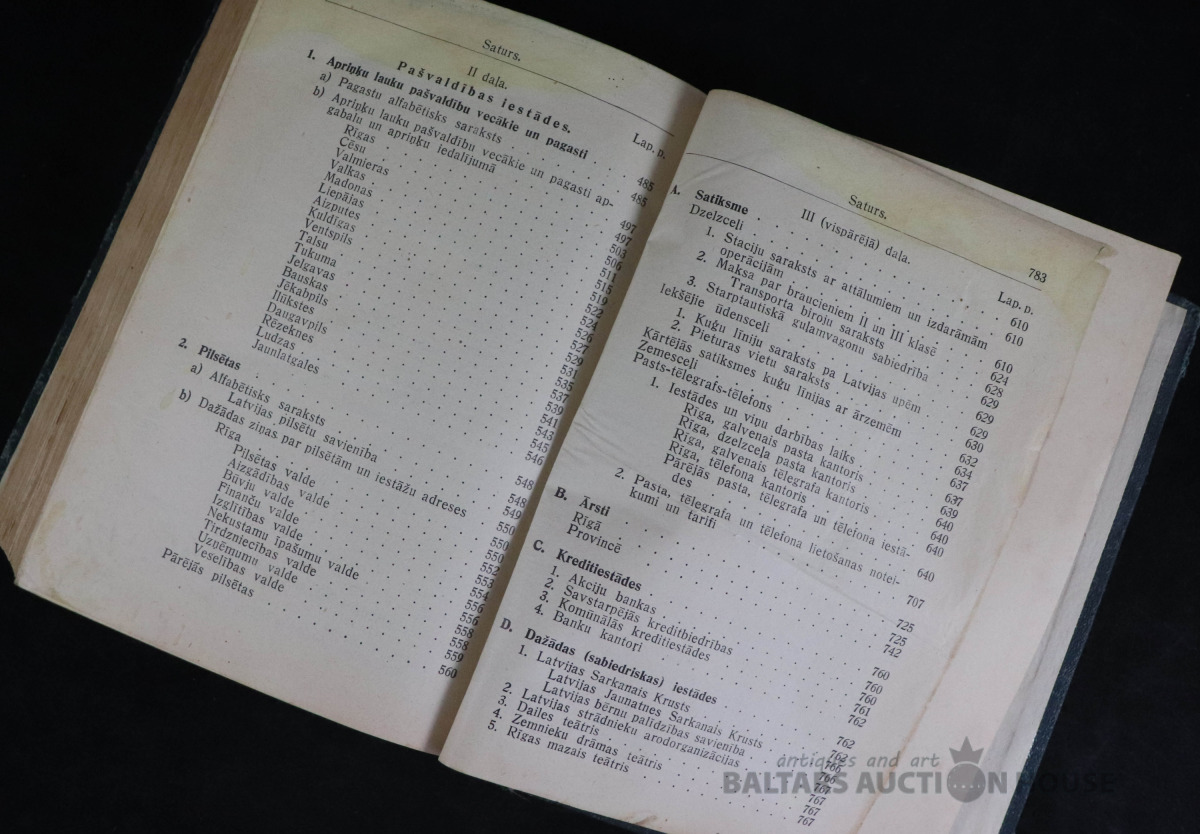 Saturs.
II daļa.
Lap. p.
Pašvaldības iestādes.
1. Apriņķu lauku pašvaldību vecākie un pagasti . 485
a) Pagastu alfabētisks saraksts . . . . . . 485
b) Apriņķu lauku pašvaldību vecākie un pagasti ap-
gabalu un apriņķu iedalījumā . . . . . . 497
Rīgas . . . . . . 497
Cēsu . . . . . . 503
Valmieras . . . . . . 506
Valkas . . . . . . 511
Madonas . . . . . . 515
Liepājas . . . . . . 519
Aizputes . . . . . . 522
Kuldīgas . . . . . . 524
Ventspils . . . . . . 526
Talsu . . . . . . 527
Tukuma . . . . . . 529
Jelgavas . . . . . . 531
Bauskas . . . . . . 535
Jēkabpils . . . . . . 537
Ilūkstes . . . . . . 539
Daugavpils . . . . . . 541
Rēzeknes . . . . . . 543
Ludzas . . . . . . 545
Jaunlatgales . . . . . . 546
2. Pilsētas . . . . . . 548
a) Alfabētisks saraksts . . . . . . 548
Latvijas pilsētu savienība . . . . . . 549
b) Dažādas ziņas par pilsētām un iestāžu adreses 550
Rīga . . . . . . 550
Pilsētas valde . . . . . . 550
Aizgādības valde . . . . . . 552
Būvju valde . . . . . . 553
Finanču valde . . . . . . 554
Izglītības valde . . . . . . 556
Nekustamu īpašumu valde . . . . . . 556
Tirdzniecības valde . . . . . . 558
Uzņēmumu valde . . . . . . 558
Veselības valde . . . . . . 559
Pārējās pilsētas . . . . . . 560
Saturs.
783
III (vispārējā) daļa.
Lap. p.
A. Satiksme . . . . . . 610
Dzelzceļi . . . . . . 610
1. Staciju saraksts ar attālumiem un izdarāmām
operācijām . . . . . . 610
2. Maksa par braucieniem II un III klasē . 624
Transporta biroju saraksts . . . . . . 628
3. Starptautiskā guļamvagonu sabiedrība . 629
Iekšējie ūdensceļi . . . . . . 629
1. Kuģu līniju saraksts pa Latvijas upēm . 629
2. Pieturas vietu saraksts . . . . . . 630
Kārtējās satiksmes kuģu līnijas ar ārzemēm . 632
Zemesceļi . . . . . . 634
Pasts-tēlegrafs-tēlefons . . . . . . 637
1. Iestādes un viņu darbības laiks . . . . . . 637
Rīga, galvenais pasta kantoris . . . . . . 639
Rīga, dzelzceļa pasta kantoris . . . . . . 640
Rīga, galvenais tēlegrafa kantoris . . . . . . 640
Rīga, tēlefona kantoris . . . . . . 640
Pārējās pasta, tēlegrafa un tēlefona iestā-
des . . . . . . 640
2. Pasta, tēlegrafa un tēlefona lietošanas notei-
kumi un tarifi . . . . . . 707
B. Ārsti . . . . . . 725
Rīgā . . . . . . 725
Provincē . . . . . . 742
C. Kreditiestādes . . . . . . 760
1. Akciju bankas . . . . . . 760
2. Savstarpējās kreditbiedrības . . . . . . 760
3. Komūnālās kreditiestādes . . . . . . 761
4. Banku kantori . . . . . . 762
D. Dažādas (sabiedriskas) iestādes . . . . . . 762
1. Latvijas Sarkanais Krusts . . . . . . 762
Latvijas Jaunatnes Sarkanais Krusts
Latvijas bērnu palīdzības savienība
2. Latvijas strādnieku arodorganizācijas
3. Dailes teātris . . . . . . 767
4. Zemnieku drāmas teātris . . . . . . 767
5. Rīgas mazais teātris . . . . . . 767
antiques and art
BALTARS AUCTION HOUSE